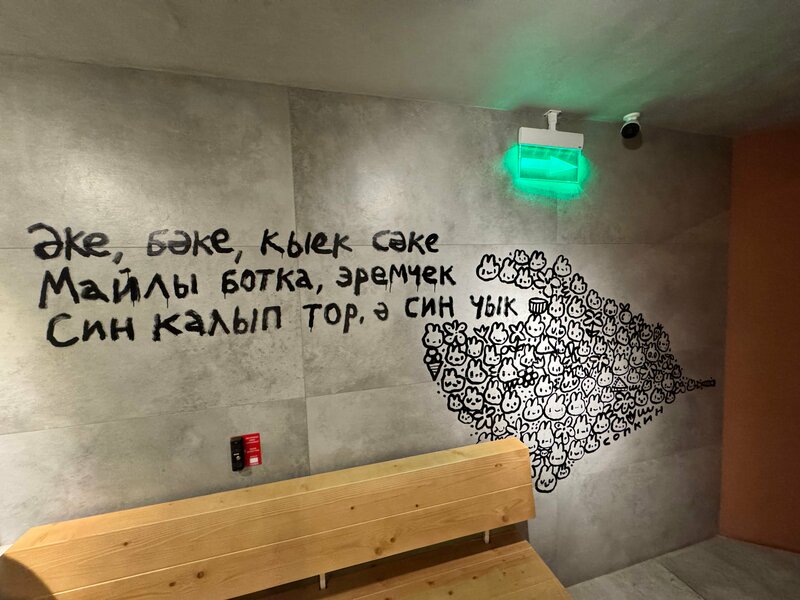 Әке, бәке, кыек сәке
Майлы ботка, эремчек
Син калып тор, ә син чык
сопкин